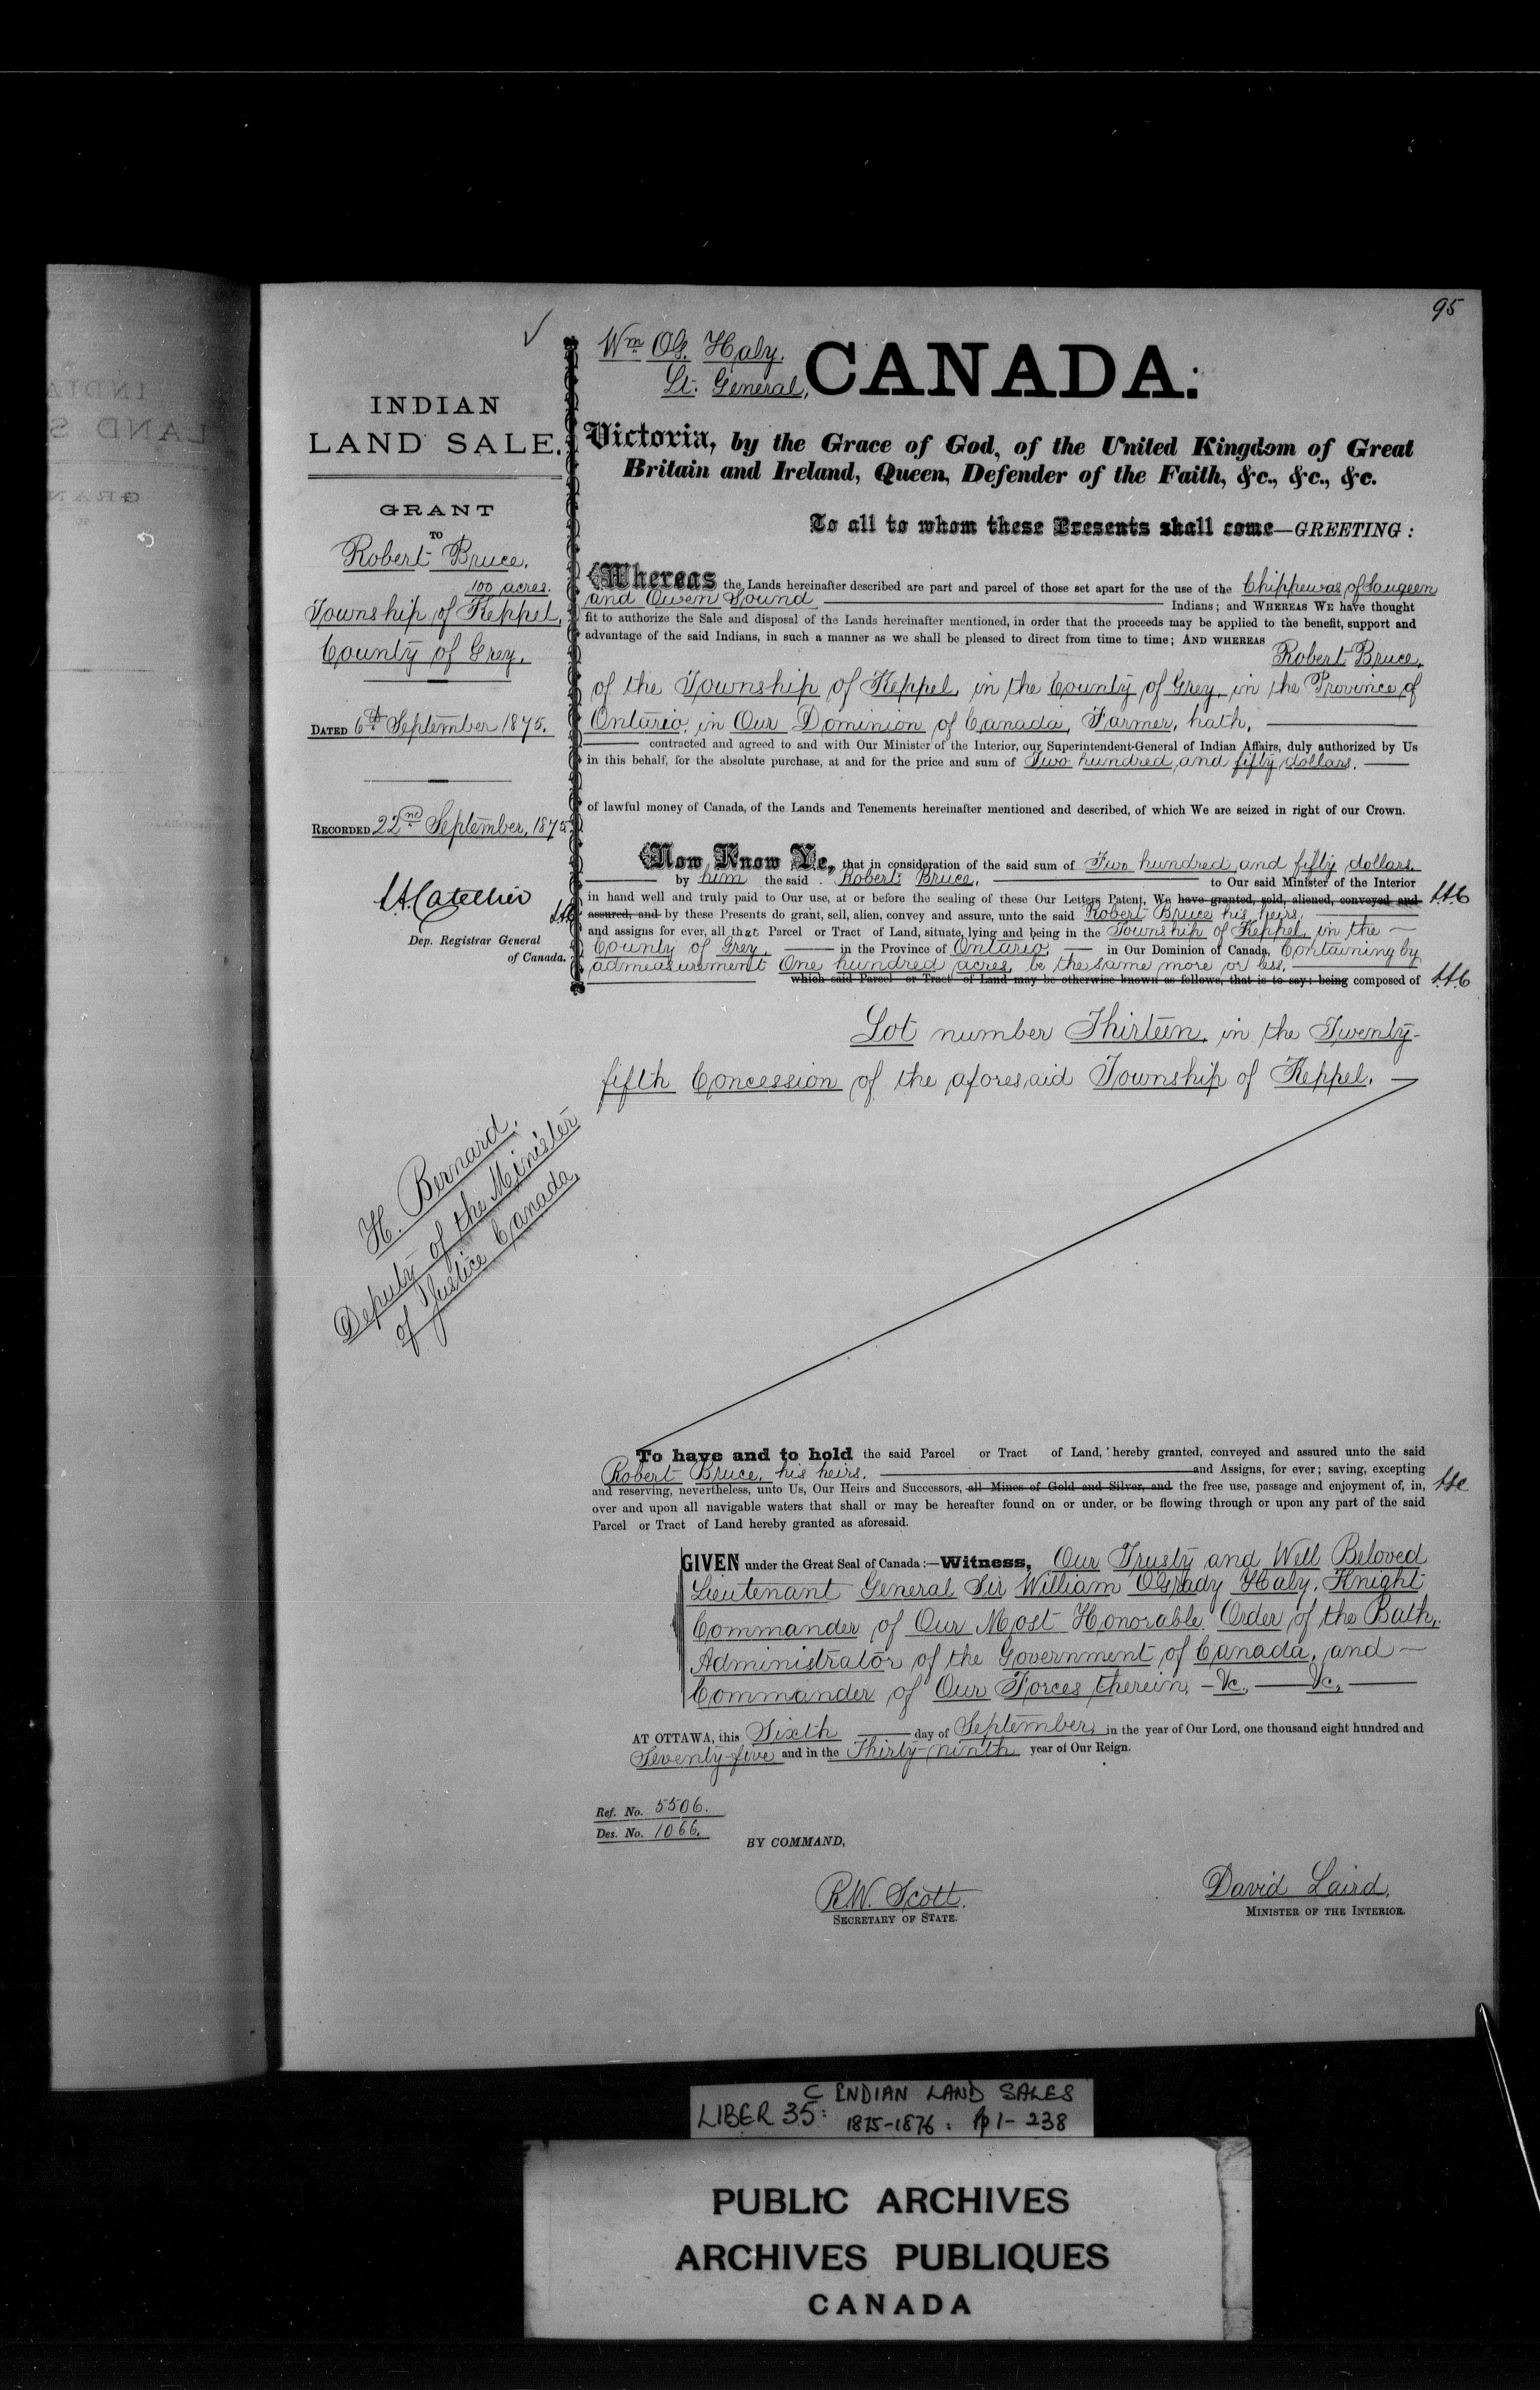 95
Wm OG. Haly.
Lt. General,
CANADA:
INDIAN
LAND SALE.
Victoria, by the Grace of God, of the United Kingdom of Great
Britain and Ireland, Queen, Defender of the Faith, &c., &c., &c.
To all to whom these Presents shall come—GREETING:
GRANT
TO
Robert Bruce.
100 acres.
Township of Keppel,
County of Grey.
DATED 6th September 1875.
RECORDED 22nd September, 1875
Dep. Registrar General
of Canada.
Whereas the Lands hereinafter described are part and parcel of those set apart for the use of the Chippewas of Saugeen
and Owen Sound Indians; and WHEREAS WE have thought
fit to authorize the Sale and disposal of the Lands hereinafter mentioned, in order that the proceeds may be applied to the benefit, support and
advantage of the said Indians, in such a manner as we shall be pleased to direct from time to time; AND WHEREAS
Robert Bruce,
of the Township of Keppel, in the County of Grey, in the Province of
Ontario, in Our Dominion of Canada, Farmer, hath,
contracted and agreed to and with Our Minister of the Interior, our Superintendent-General of Indian Affairs, duly authorized by Us
in this behalf, for the absolute purchase, at and for the price and sum of Two hundred and fifty dollars.
of lawful money of Canada, of the Lands and Tenements hereinafter mentioned and described, of which We are seized in right of our Crown.
Now Know Ye, that in consideration of the said sum of Two hundred and fifty dollars.
by him the said Robert Bruce, to Our said Minister of the Interior
in hand well and truly paid to Our use, at or before the sealing of these Our Letters Patent, We have granted, sold, aliened, conveyed and
assured, and by these Presents do grant, sell, alien, convey and assure, unto the said Robert Bruce his heirs,
and assigns for ever, all that Parcel or Tract of Land, situate, lying and being in the Township of Keppel, in the
County of Grey in the Province of Ontario, in Our Dominion of Canada, Containing by
admeasurement One hundred acres, be the same more or less,
which said Parcel or Tract of Land may be otherwise known as follows, that is to say: being composed of
Lot number Thirteen, in the Twenty-
fifth Concession of the aforesaid Township of Keppel.
H. Bernard.
Deputy of the Minister
of Justice Canada.
To have and to hold the said Parcel or Tract of Land, hereby granted, conveyed and assured unto the said
Robert Bruce, his heirs, and Assigns, for ever; saving, excepting
and reserving, nevertheless, unto Us, Our Heirs and Successors, all Mines of Gold and Silver, and the free use, passage and enjoyment of, in,
over and upon all navigable waters that shall or may be hereafter found on or under, or be flowing through or upon any part of the said
Parcel or Tract of Land hereby granted as aforesaid.
GIVEN under the Great Seal of Canada:—Witness, Our Trusty and Well Beloved
Lieutenant General Sir William OGrady Haly, Knight
Commander of Our Most Honorable Order of the Bath,
Administrator of the Government of Canada, and
Commander of Our Forces therein, &c, &c,
AT OTTAWA, this Sixth day of September, in the year of Our Lord, one thousand eight hundred and
Seventy-five and in the Thirty-ninth year of Our Reign.
Ref. No. 5506.
Des. No. 1066.
BY COMMAND,
R.W. Scott.
SECRETARY OF STATE.
David Laird,
MINISTER OF THE INTERIOR.
C INDIAN LAND SALES
LIBER 35: 1875-1876: pp 1-238
PUBLIC ARCHIVES
ARCHIVES PUBLIQUES
CANADA